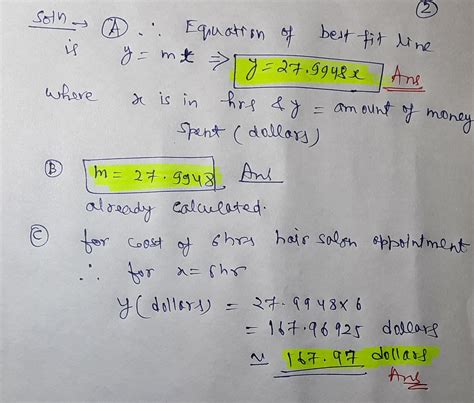 ②
Soln → Ⓐ ∴ Equation of best fit line
is y = mx ⇒ y = 27.9948x Ans
where x is in hrs & y = amount of money
spent (dollars)
Ⓑ m = 27.9948 Ans
already calculated.
Ⓒ for cost of 6hrs hair salon appointment
∴ for x = 6hr
y (dollars) = 27.9948 × 6
= 167.96925 dollars
≈ 167.97 dollars
Ans